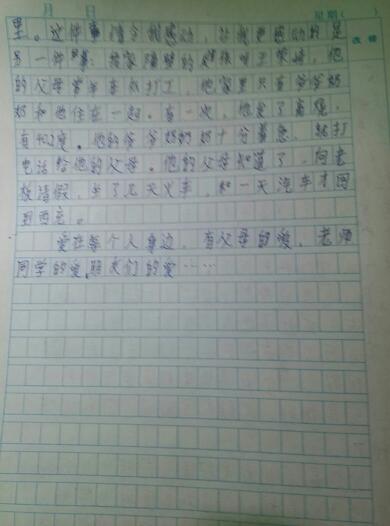 月 日 星期( )
改错
里。这件事情令我感动，让我更感动的是
另一件事：我家隔壁的 孩叫王 ，他
的父母常年在外打工，他家里只有爷爷奶
奶和他住在一起。有一次，他发了高烧，
有40.2度。他的爷爷奶奶十分着急，就打
电话给他的父母。他的父母知道了，向老
板请假，坐了几天火车，和一天汽车才回
到 。
爱在每个人身边，有父母的爱，老师
同学的爱，朋友们的爱……